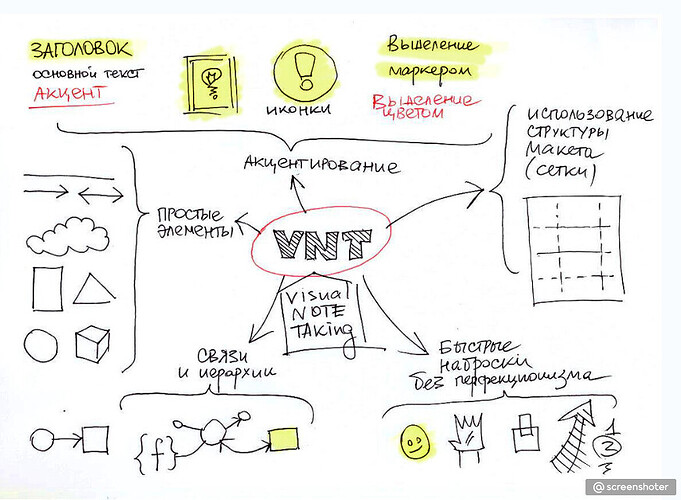 ЗАГОЛОВОК
основной текст
АКЦЕНТ
иконки
Выделение
маркером
Выделение
цветом
использование
структуры
макета
(сетки)
Акцентирование
простые
элементы
VNT
Visual
NOTE
TAKing
связи
и иерархии
Быстрые
наброски
без перфекционизма
{f}
1
2
3
@screenshoter